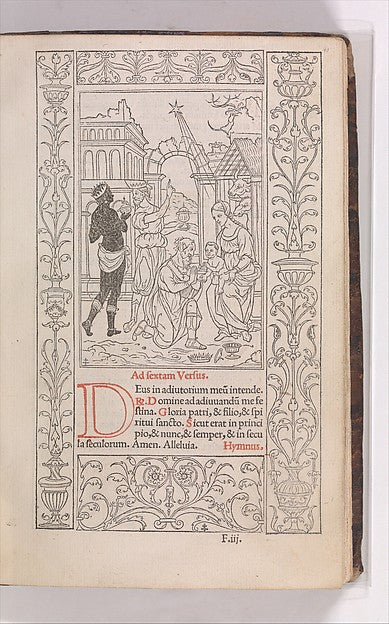 Ad sextam Versus.
Deus in adiutorium meũ intende.
℞. Domine ad adiuuandũ me fe
stina. Gloria patri, & filio, & spi
ritui sancto. Sicut erat in princi
pio, & nunc, & semper, & in secu
la seculorum. Amen. Alleluia. Hymnus.
F.iij.